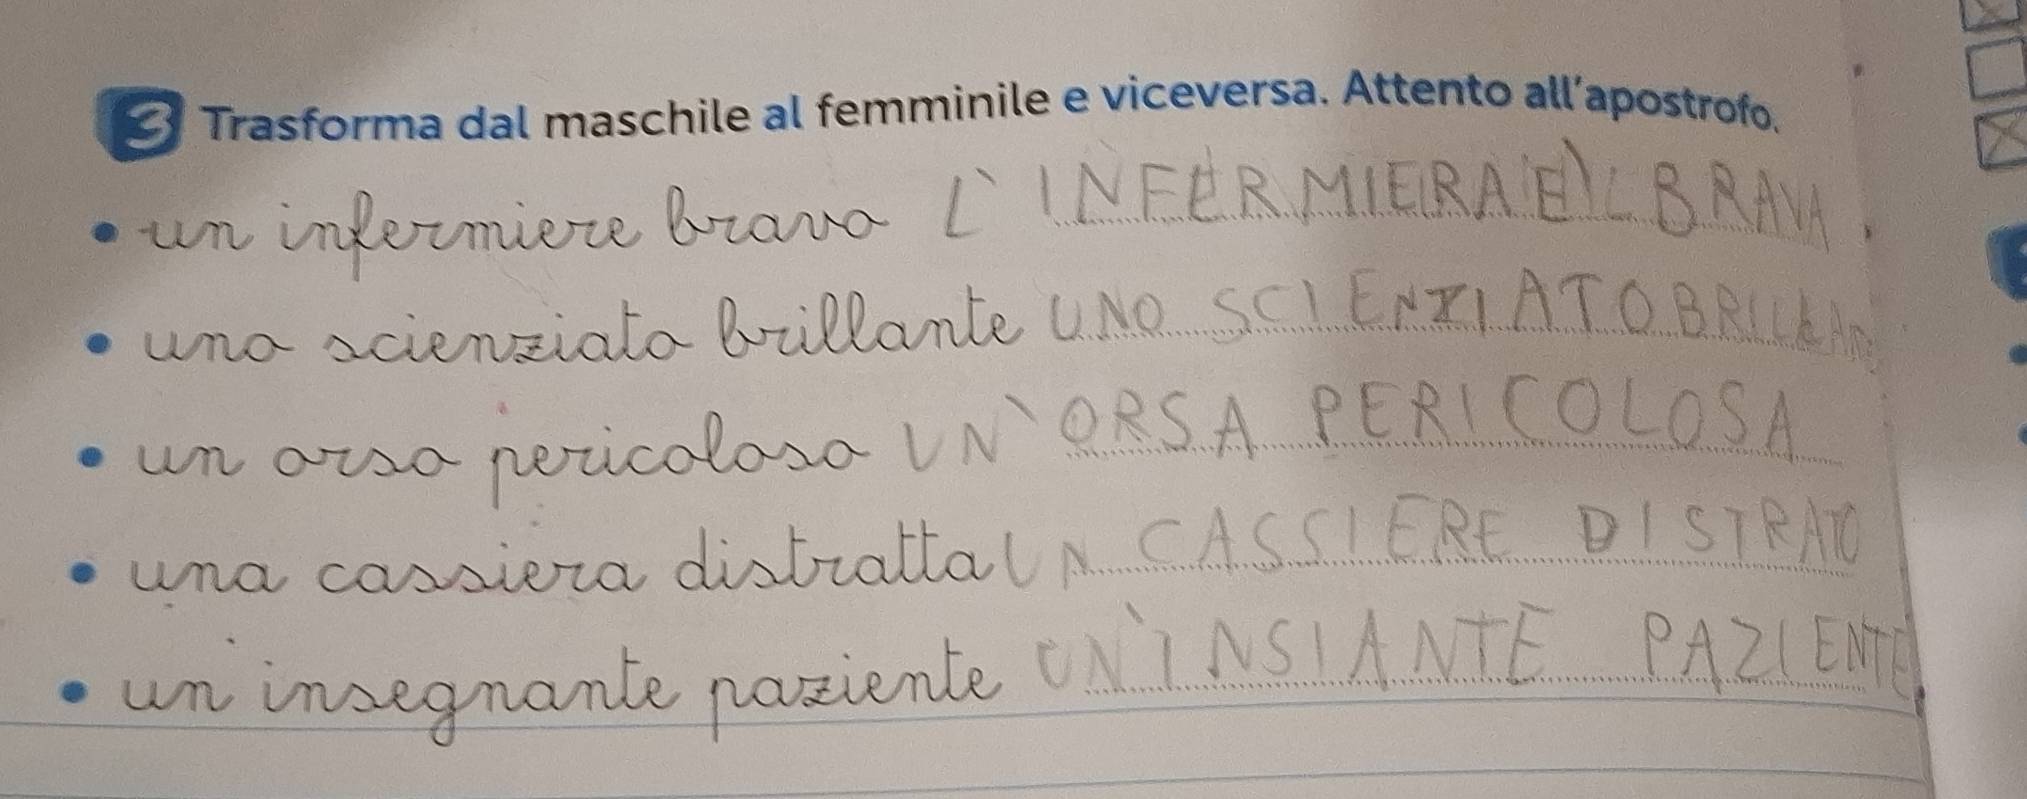 3 Trasforma dal maschile al femminile e viceversa. Attento all'apostrofo.
• un infermiere bravo L'INFERMIERA È BRAVA.
• uno scienziato brillante UNO SCIENZIATO
• un orso pericoloso UN'ORSA PERICOLOSA
• una cassiera distratta UN CASSIERE DISTRATO
• un insegnante paziente UN'INSIANTE PAZIENTE